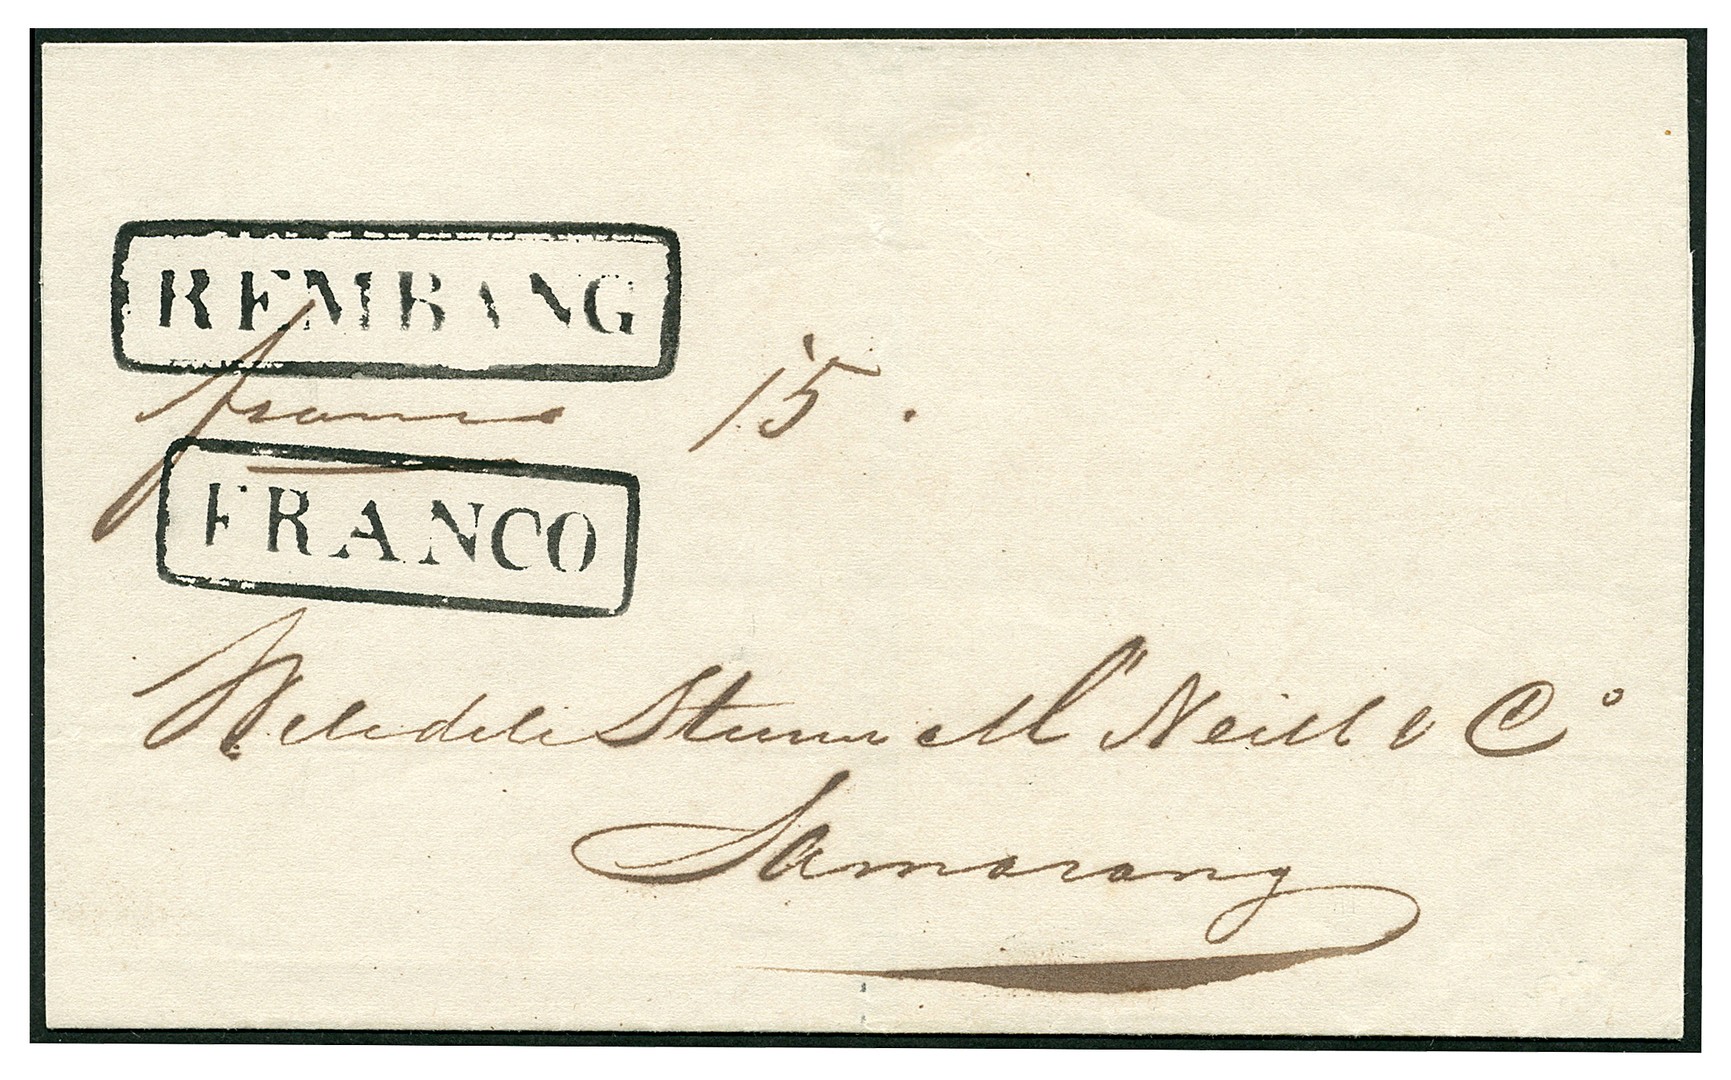 REMBANG
franco 15.
FRANCO
Weledele Heeren McNeill & Co
Samarang